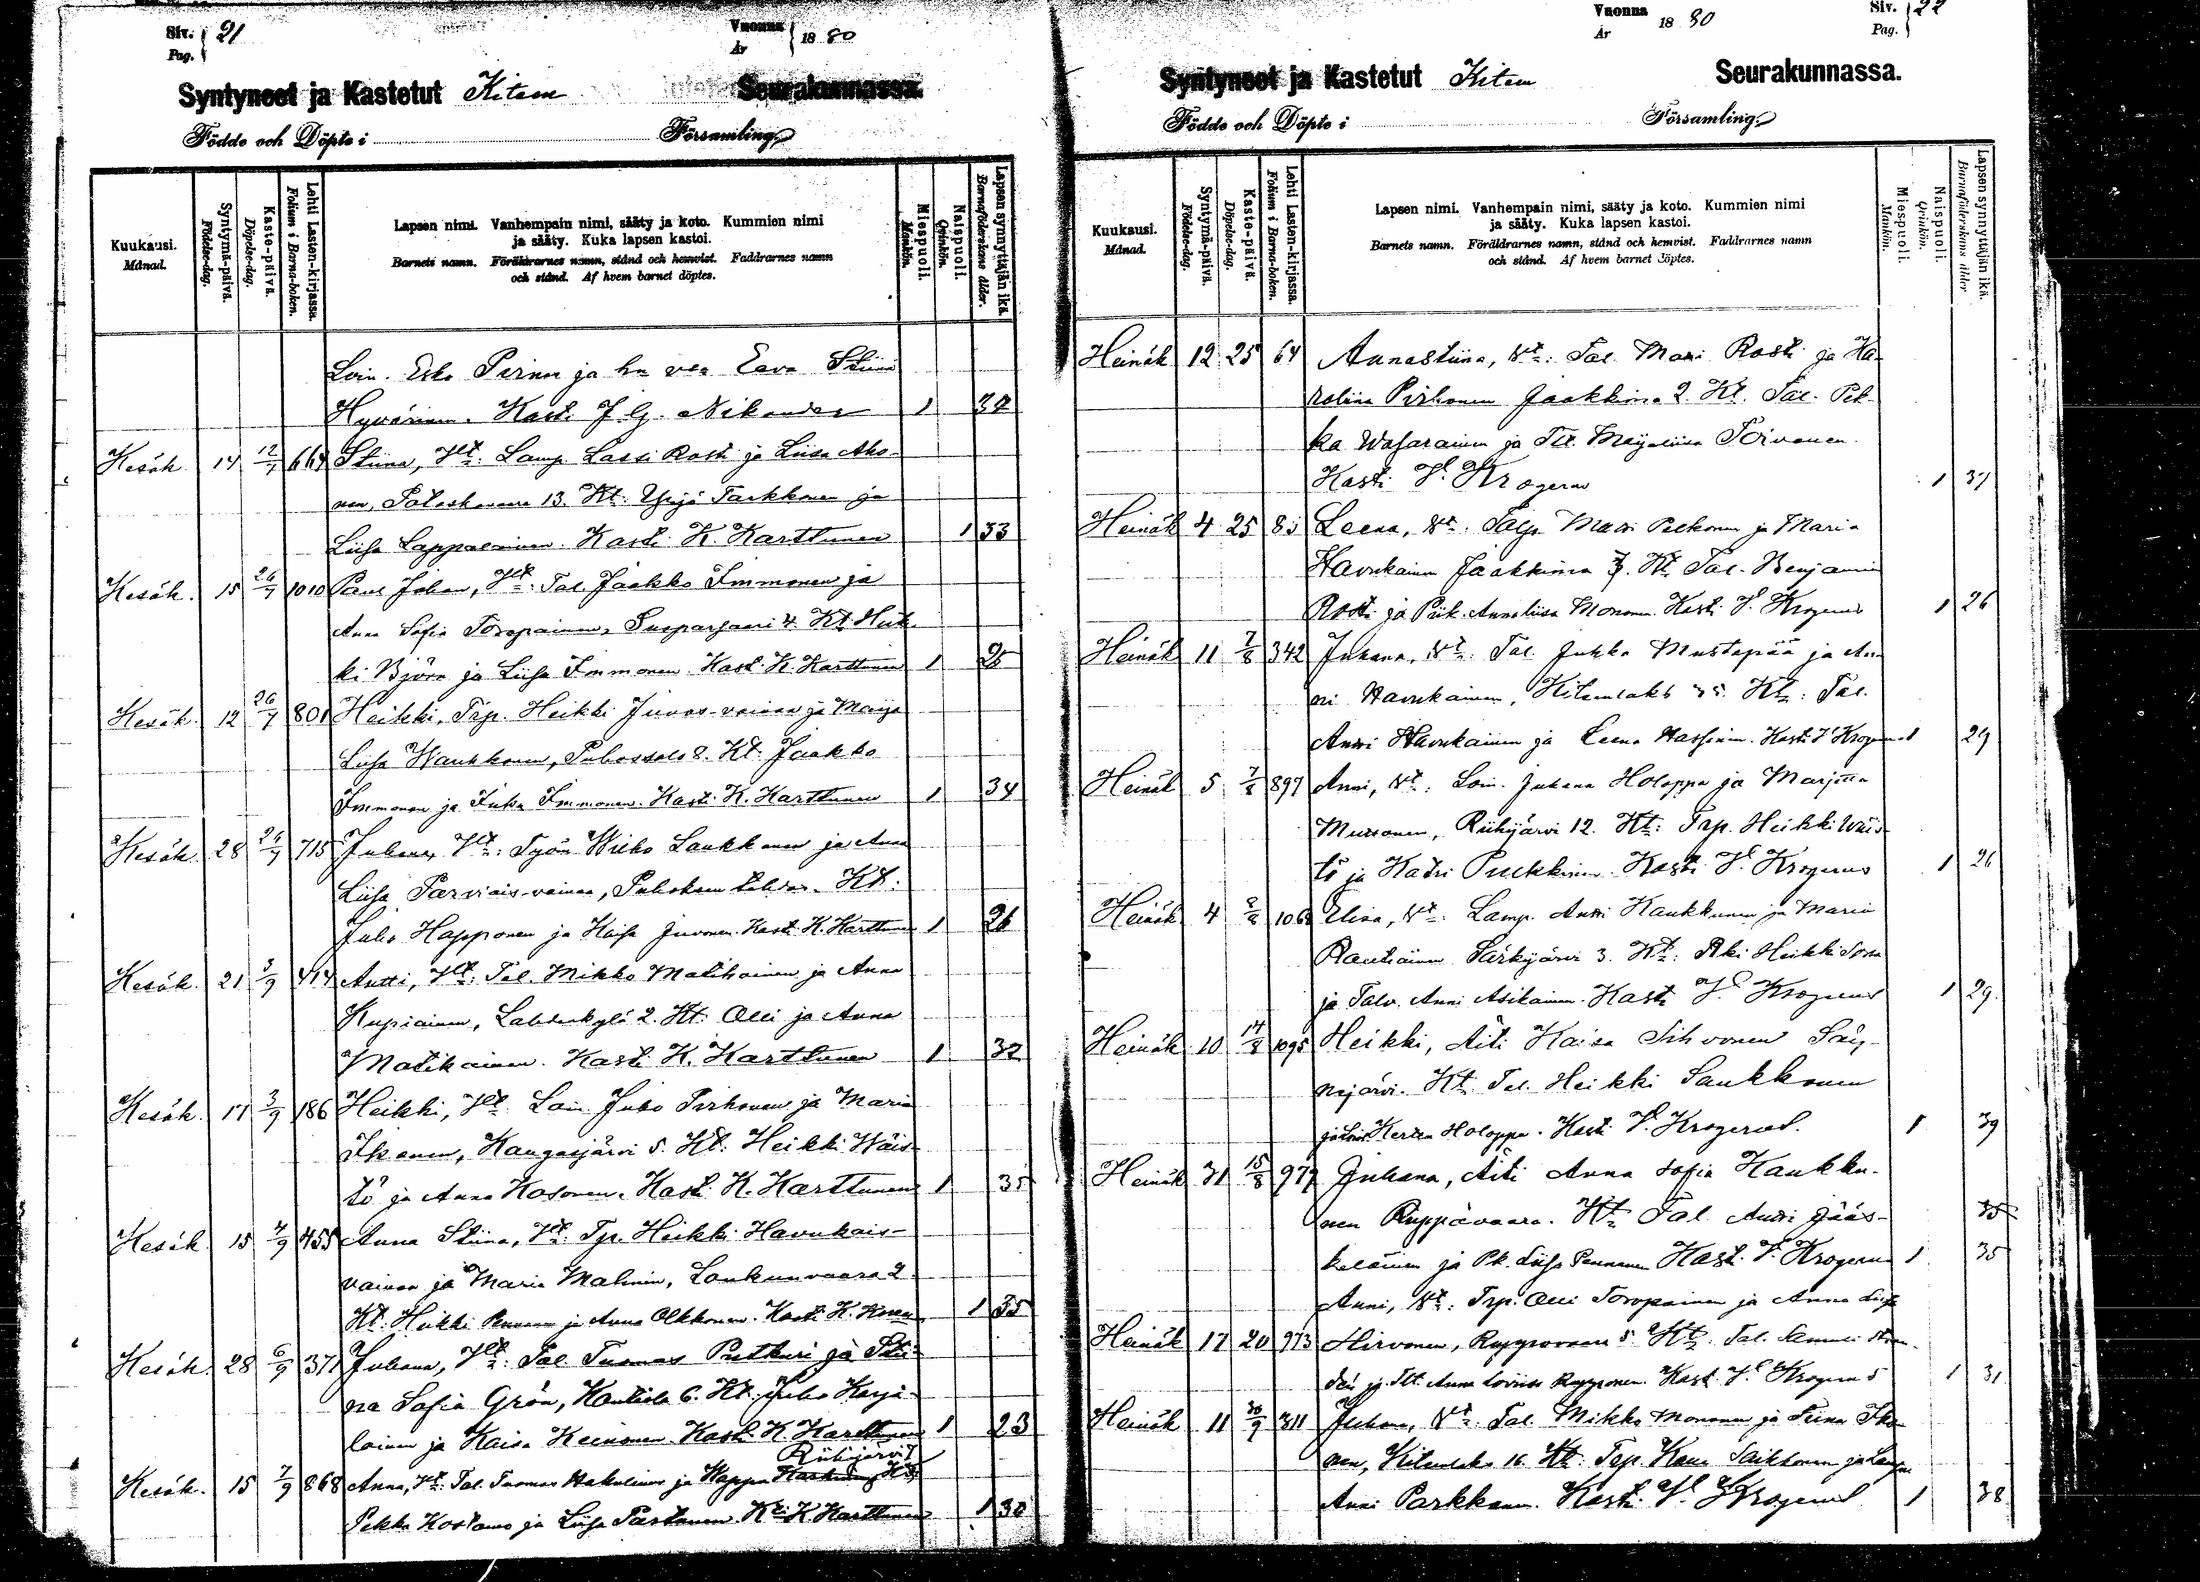 Siv. 21
Pag.
Vuonna 1880
År
Syntyneet ja Kastetut Kiteen Seurakunnassa.
Födde och Döpte i Församling.
Kuukausi.
Månad.
Syntymä-päivä.
Födelse-dag.
Kaste-päivä.
Döpelse-dag.
Lehti Lasten-kirjassa.
Folium i Barna-boken.
Lapsen nimi. Vanhempain nimi, sääty ja koto. Kummien nimi
ja sääty. Kuka lapsen kastoi.
Barnets namn. Föräldrarnes namn, stånd och hemvist. Faddrarnes namn
och stånd. Af hvem barnet döptes.
Miespuoli.
Mankön.
Naispuoli.
Qvinkön.
Lapsen synnyttäjän ikä.
Barnaföderskans ålder.
Loin. Esko Pirnes ja hn vea Eeva Stiina
Hyvärinen. Kast. J. G. Nikander 1
Kesäk 14 12/7 664 Stiina, Vt: Lamp. Lassi Rosti ja Liisa Aho-
nen, 13. Kt: Yrjö Tarkkonen ja
Liisa Lappalainen. Kasti K. Karttunen 1 33
Kesäk. 15 26/7 1010 Johan, Vt: Tal. Jaakko Immonen ja
Anna Sofia Toropainen, Suoparsaari 4. Kt. Heik-
ki Björn ja Liisa Immonen. Kast. K. Karttunen 1 25
Kesäk. 12 26/7 801 Heikki, Trp. Heikki Juvos-vainaa ja Maija
Liisa Waukkonen, Puhossalo 8. Kt. Jaakko
Immonen ja Juha Immonen. Kast. K. Karttunen 1 34
Kesäk. 28 26/7 715 Juhana, Vt: Työm. Laukkanen ja Anna
Liisa Parviais-vainaa, Kt:
Juho Happonen ja Kaisa Juvonen. Kast. K. Karttunen 1 26
Kesäk. 21 3/9 414 Antti, Vt: Tal. Mikko Matikainen ja Anna
Kupiainen, Lahdenkylä 2. Kt. Olli ja Anna
Matikainen. Kast. K. Karttunen 1 32
Kesäk. 17 3/9 186 Heikki, Vt: Loin. Juho Pirhonen ja Maria
Ikonen, Kangasjärvi 5. Kt: Heikki Wäis-
tö ja Anna Kosonen. Kast. K. Karttunen 1 35
Kesäk. 15 4/9 455 Anna Stiina, Vt: Tp. Heikki Havukais-
vainaa ja Maria Malinen, Loukunvaara 2.
Kt. Heikki Pennanen ja Anna Olkkonen. Kast. K. 1 35
Kesäk. 28 6/9 371 Juhana, Vt: Tal. Tuomas Putkuri ja Stii-
na Sofia Grön, Kantiola 6. Kt. Juho Karja-
lainen ja Kaisa Keinonen. Kast. K. Karttunen 1 23
Riihijärvi 7
Kesäk. 15 7/9 868 Anna, Vt: Tal. Tuomas Hakulinen ja Kt:
Pekka Kostamo ja Liisa Partanen. K: K. Karttunen 1 30
Siv. 22
Pag.
Vuonna 1880
År
Syntyneet ja Kastetut Kiteen Seurakunnassa.
Födde och Döpte i Församling.
Kuukausi.
Månad.
Syntymä-päivä.
Födelse-dag.
Kaste-päivä.
Döpelse-dag.
Lehti Lasten-kirjassa.
Folium i Barna-boken.
Lapsen nimi. Vanhempain nimi, sääty ja koto. Kummien nimi
ja sääty. Kuka lapsen kastoi.
Barnets namn. Föräldrarnes namn, stånd och hemvist. Faddrarnes namn
och stånd. Af hvem barnet döptes.
Miespuoli.
Mankön.
Naispuoli.
Qvinkön.
Lapsen synnyttäjän ikä.
Barnaföderskans ålder
Heinäk 12 25 64 Annastiina, Vt: Tal. Matti Rosti ja Ka-
rolina Pirhonen Jaakkima 2. Kt. Tal. Pek-
ka Wasarainen ja Tll. Maijaliisa Toivanen.
Kasti V. Krogerus 1 37
Heinäk 4 25 83 Leena, Vt: Talp. Matti Pelkonen ja Maria
Havukainen Jaakkima 7. Kt. Tal. Benjamin
Rosti ja Piik. Annaliisa Mononen. Kasti V. Krogerus 1 26
Heinäk 11 7/8 342 Juhana, Vt: Tal. Jukka Mustapää ja An-
ni Havukainen, Kiteenlaks 35. Kt: Tal.
Antti Havukainen ja Leena Hassinen. Kasti V. Krogerus 1 29
Heinäk 5 7/8 897 Anni, Vt: Loin. Juhana Holoppa ja Marjetta
Mutanen, Riihijärvi 12. Kt: Trp. Heikki Wäis-
tö ja Katri Pulkkinen. Kasti V. Krogerus 1 26
Heinäk 4 8/8 1068 Elisa, Vt: Lamp. Antti Kaukkunen ja Maria
Rautiainen Särkijärvi 3. Kt: Rki Heikki
ja Talv. Anni Asikainen. Kasti V. Krogerus 1 29.
Heinäk 10 14/8 1095 Heikki, Äiti Kaisa Sihvonen Säy-
nejärvi. Kt. Tal. Heikki Saukkonen
ja Lois. Kerttu Holoppa. Kasti V. Krogerus. 1 39
Heinäk 31 15/8 979 Juhana, Äiti Anna Sofia Kaukku-
nen Ruppovaara. Kt. Tal. Antti Jääs- 35
keläinen ja Pk. Liisa Pennanen Kast. V. Krogerus 1 35
Anni, Vt: Trp. Olli Toropainen ja Anna Liisa
Heinäk 17 20 973 Hirvonen, Ruppovaara 5. Kt: Tal. Samuli
ja Tlt. Anna Loviisa Rupponen. Kast. V. Krogerus 1 31
Heinäk 11 30/9 311 Juhana, Vt: Tal. Mikko Mononen ja Stiina Iko-
nen, Kiteenlaks 16. Kt: Trp. Saikkonen ja
Anni Parkkonen. Kasti. V. Krogerus 1 38